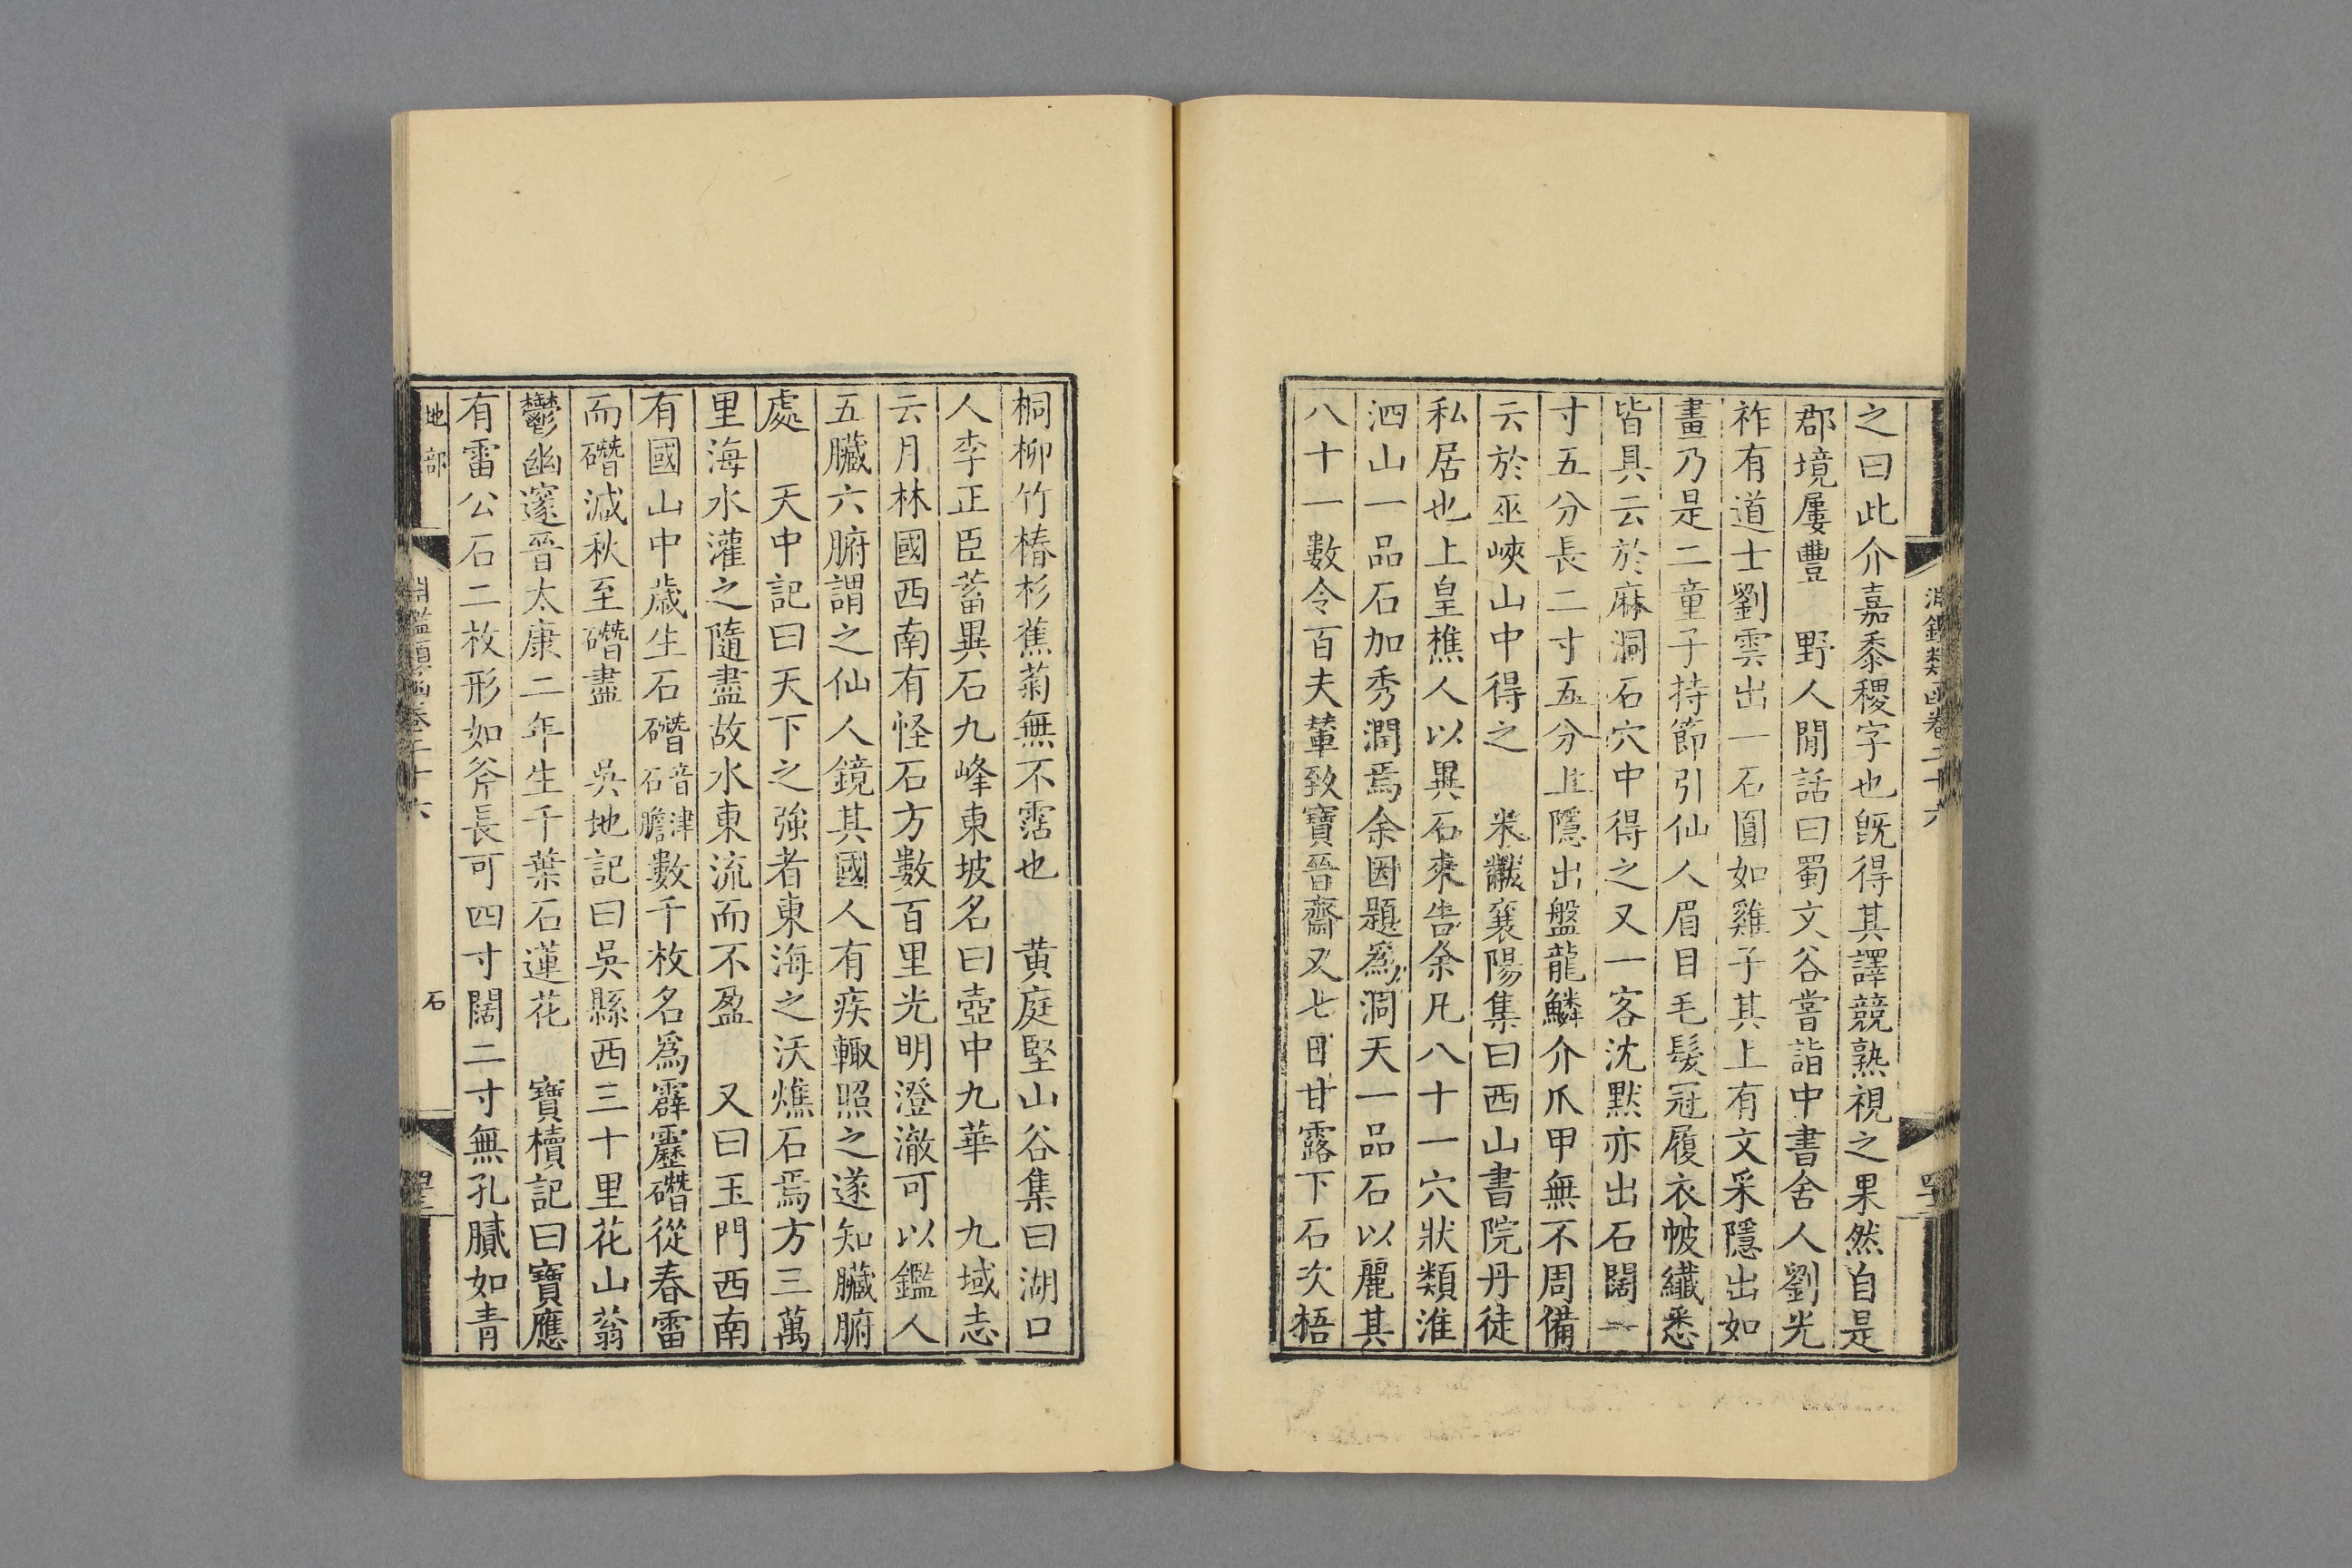 之曰此介嘉黍稷字也旣得其譯競熟視之果然自是
郡境屢豐　野人閒話曰蜀文谷嘗詣中書舍人劉光
祚有道士劉雲出一石圓如雞子其上有文采隱出如
畫乃是二童子持節引仙人眉目毛髮冠履衣帔纎悉
皆具云於麻洞石穴中得之又一客沈默亦出石闊一
寸五分長二寸五分上隱出盤龍鱗介爪甲無不周備
云於巫峽山中得之　米黻襄陽集曰西山書院丹徒
私居也上皇樵人以異石來告余凡八十一穴狀類淮
泗山一品石加秀潤焉余因題爲洞天一品石以麗其
八十一數令百夫輦致寶晉齋又七日甘露下石次梧
桐柳竹椿杉蕉菊無不霑也　黄庭堅山谷集曰湖口
人李正臣蓄異石九峰東坡名曰壺中九華　九域志
云月林國西南有怪石方數百里光明澄澈可以鑑人
五臟六腑謂之仙人鏡其國人有疾輒照之遂知臟腑
處　天中記曰天下之強者東海之沃燋石焉方三萬
里海水灌之隨盡故水東流而不盈　又曰玉門西南
有國山中歲生石磻音津石膽數千枚名爲霹靂磻從春雷
而磻減秋至磻盡　吳地記曰吳縣西三十里花山蓊
鬱幽邃晉太康二年生千葉石蓮花　寶櫝記曰寶應
有雷公石二枚形如斧長可四寸闊二寸無孔膩如青
地部
淵鑑類函卷二十六
石